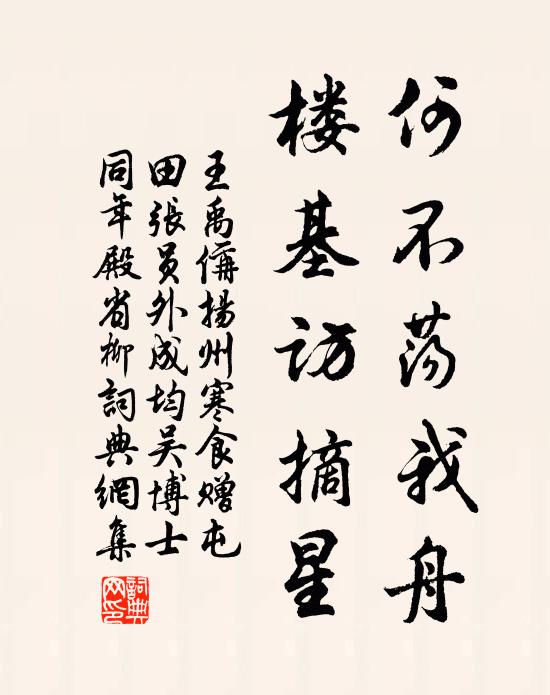 何不荡我舟
楼基访摘星
王禹偁揚州寒食赠屯
田張员外成均吴博士
同年殿省柳詞典網集
詞典
网印